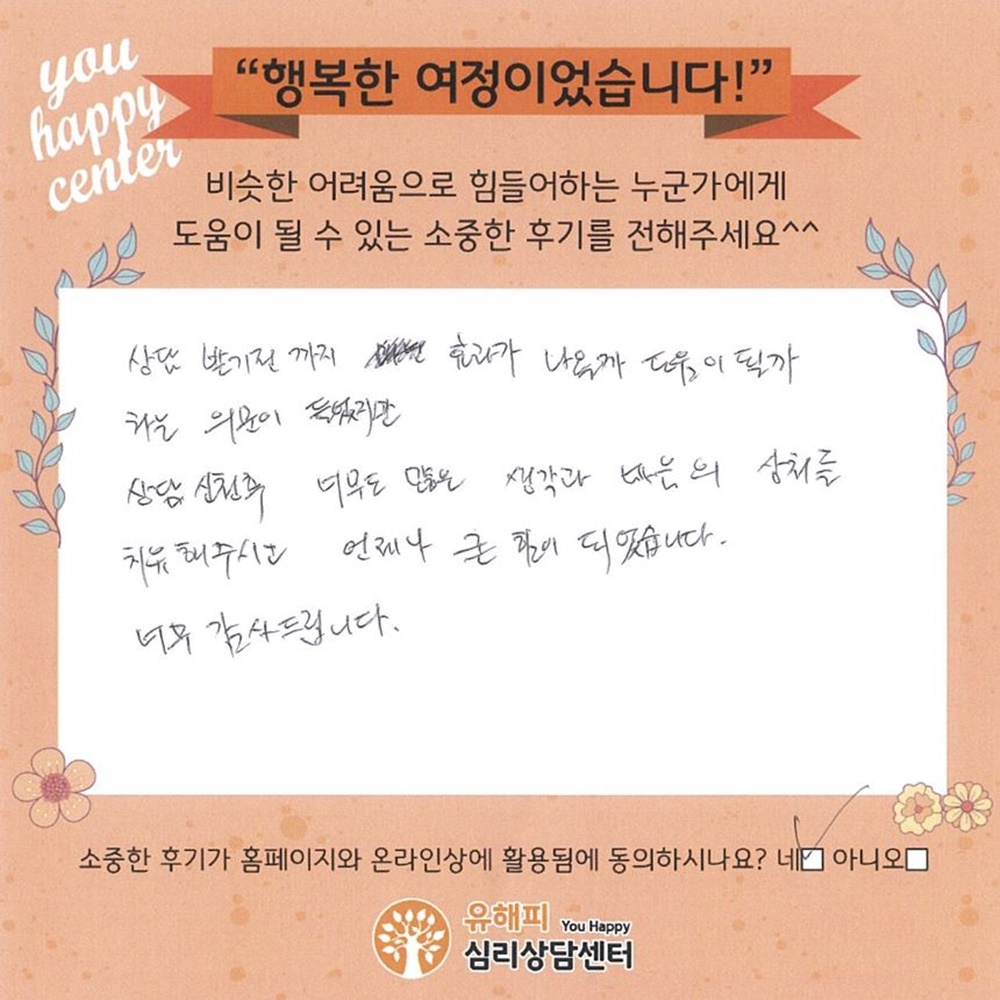 you
happy
center
“행복한 여정이었습니다!”
비슷한 어려움으로 힘들어하는 누군가에게
도움이 될 수 있는 소중한 후기를 전해주세요^^
상담 받기전 까지 효과가 나올까 도움이 될까
하는 의문이 들었지만
상담 신청후 너무도 많은 생각과 마음의 상처를
치유해주시고 언제나 큰 힘이 되었습니다.
너무 감사드립니다.
소중한 후기가 홈페이지와 온라인상에 활용됨에 동의하시나요? 네 아니오
유해피 You Happy
심리상담센터